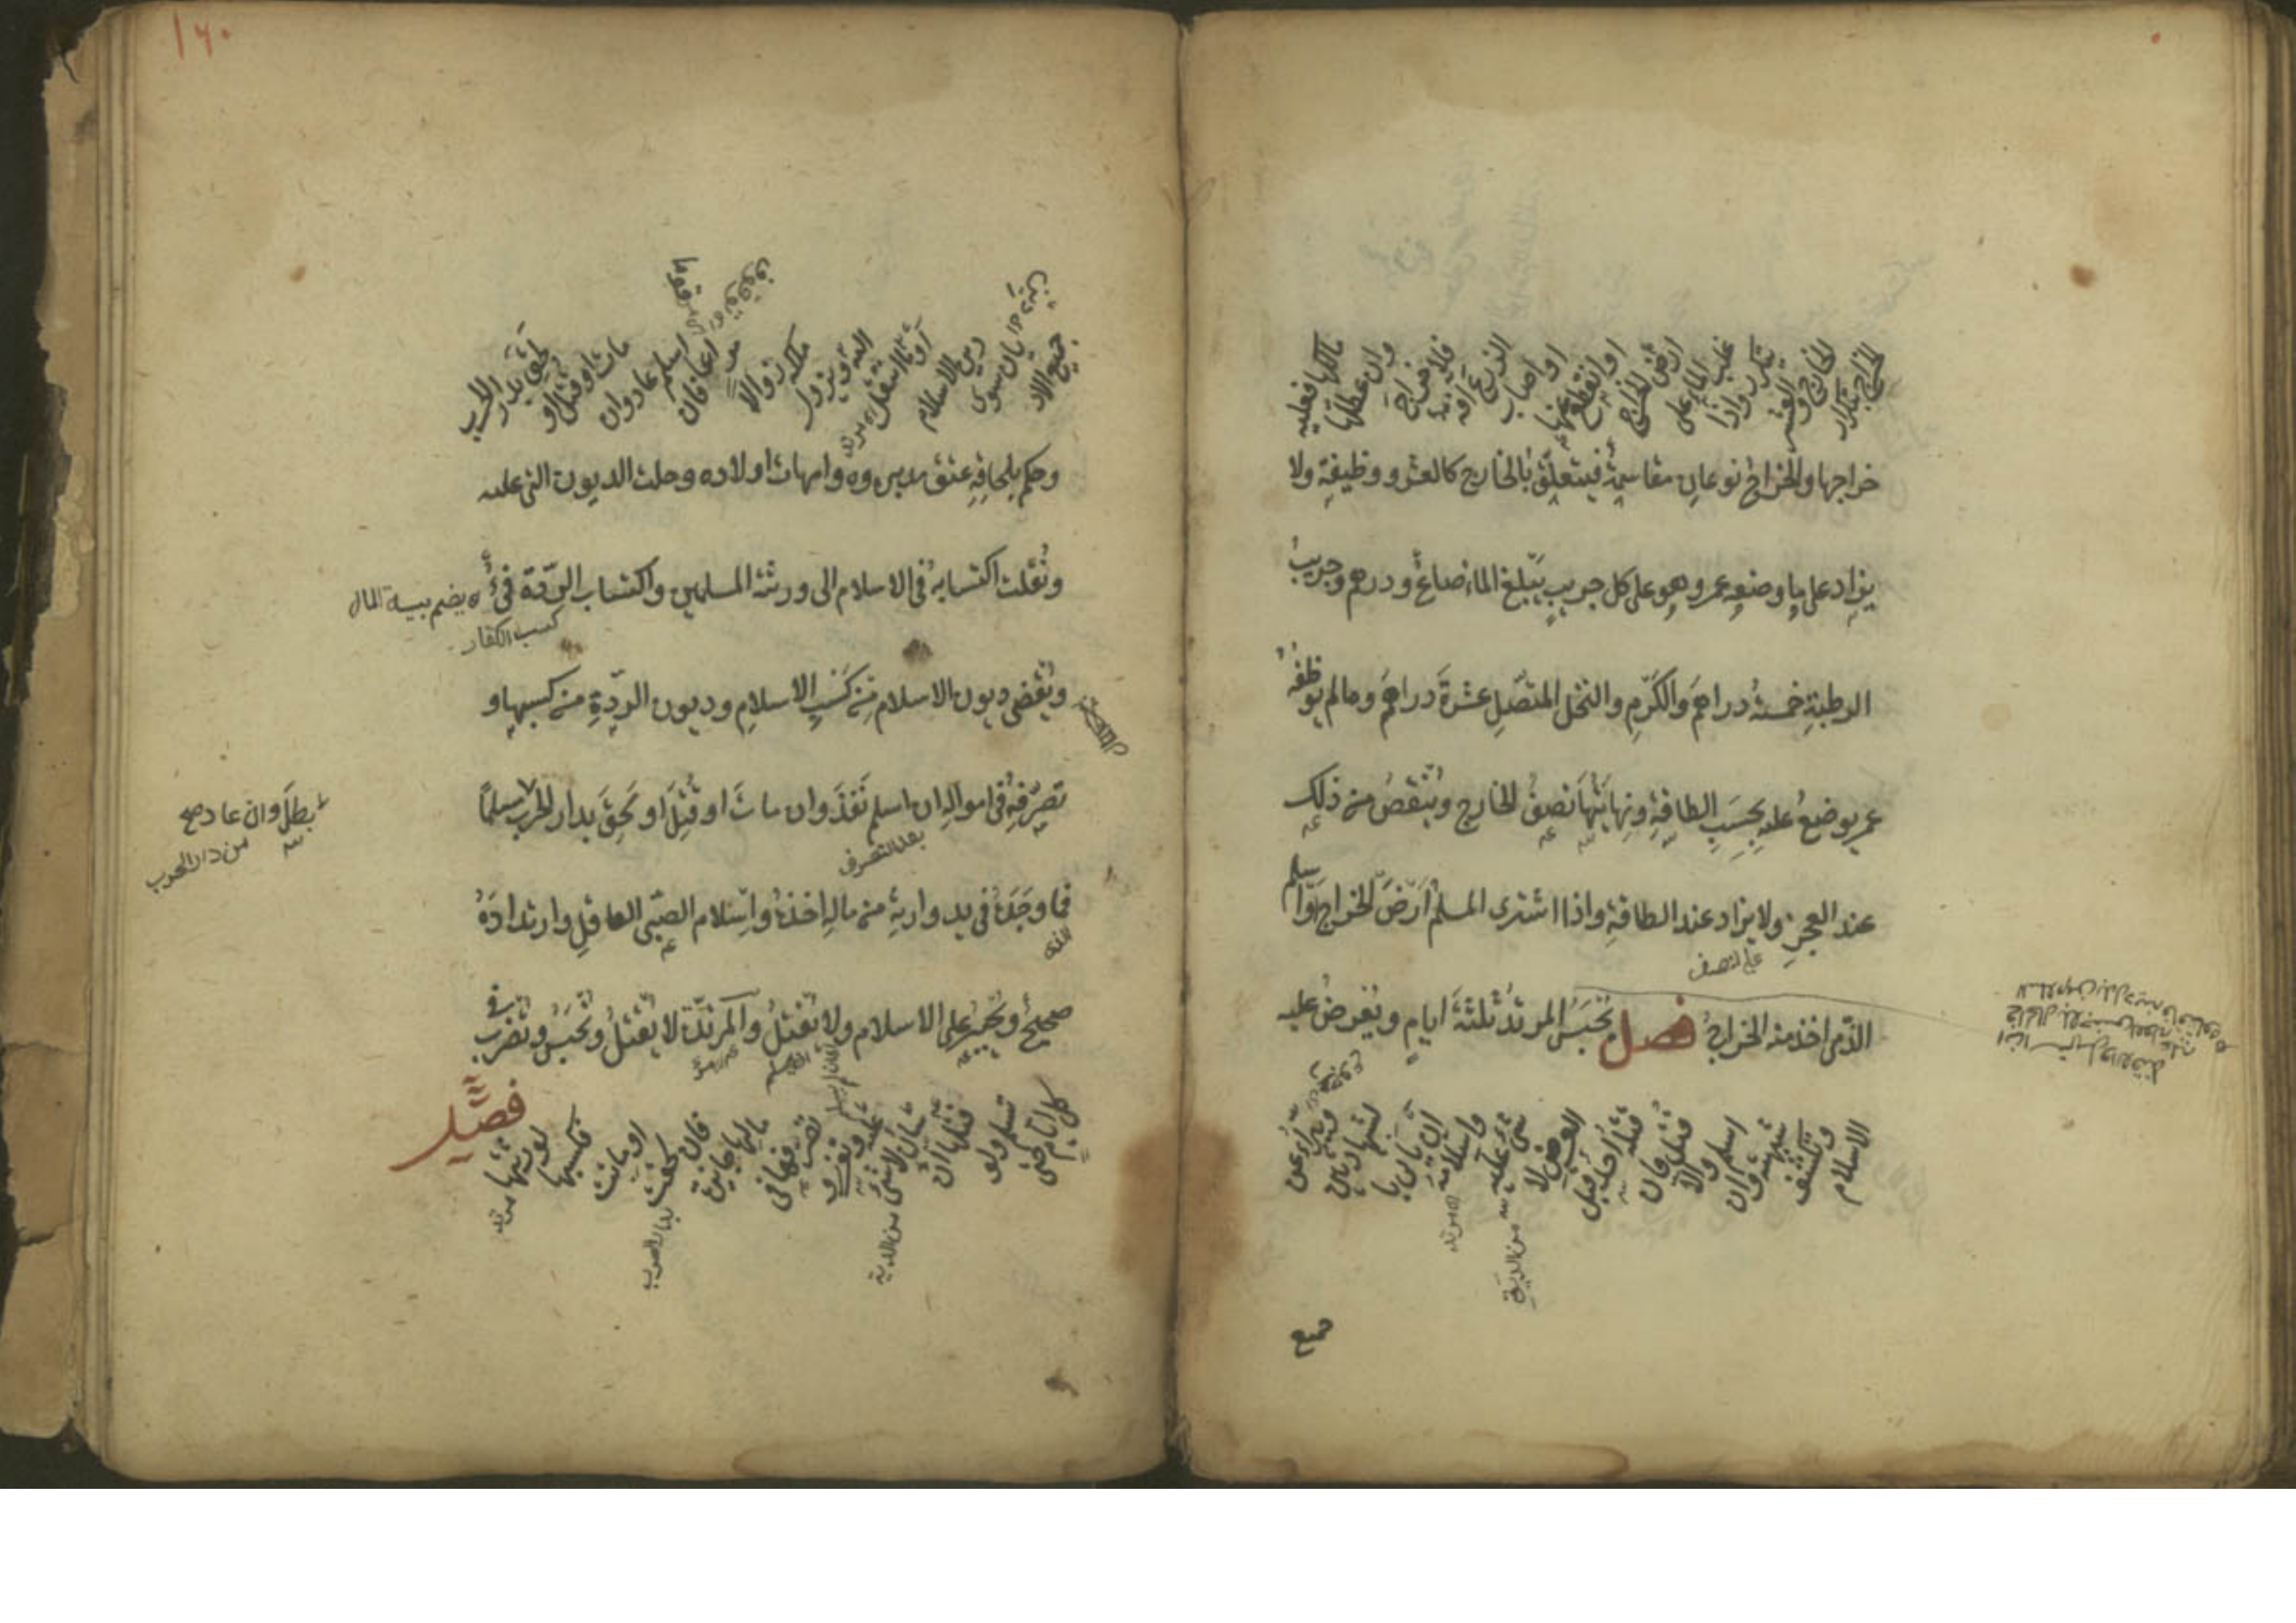 الخراج بتكرار
الخارج والعشر
يتكرر واذا
غلب الماء على
ارض الخراج
او انقطع عنها
او اصاب
الزرع آفة
فلا خراج
وان عطلها
مالكها فعليه
خراجها والخراج نوعان مقاسمة فيتعلق بالخارج كالعشر ووظيفة ولا
يزاد على ما وضعه عمر وهو على كل جريب يبلغه الماء صاع ودرهم وجريب
الرطبة خمسة دراهم والكرم والنخل المتصل عشرة دراهم وما لم يوظفه
عمر يوضع عليه بحسب الطاقة ونهايتها نصف الخارج وينقص من ذلك
عند العجز ولا يزاد عند الطاقة واذا اشترى المسلم ارض الخراج او اسلم
على النصف
الذمى اخذ منه الخراج فصل يحبس المرتد ثلثة ايام ويعرض عليه
الاسلام
وتكشف
شبهته فان
اسلم والا
قتل فان
قتله احد قبل
العرض لا
شئ عليه
من الدية
واسلامه
ان ياتى با
لشهادتين
ويتبرأ عن
جميع
١٦٠
جميع الاد
يان سوى
دين الاسلام
او عما انتقل
اليه ويزول
ملكه زوالا
مراعا فان
اسلم عاد وان
مات او قتل او
لحق بدار الحرب
وحكم بلحاقه عتق مدبروه وامهات اولاده وحلت الديون التى عليه
ونقلت اكتسابه فى الاسلام الى ورثته المسلمين واكتساب الردة فئ يضم بيت المال
كسب الكفار
وتقضى ديون الاسلام من كسب الاسلام وديون الردة من كسبها و
تصرفه فى امواله ان اسلم نفذ وان مات او قتل او لحق بدار الحرب
بطل وان عاد صح
من دار الحرب
بعد التصرف
فما وجده فى يد وارثه من ماله اخذه واسلام الصبى العاقل وارتداده
صحيح ويجبر على الاسلام ولا يقتل والمرتدة لا تقتل وتحبس وتضرب فى
كل ايام حتى
تسلم ولو
قتلها ان
سان لا شئ
من الدية
عليه
تصرفها فى
مالها جائز
فان لحقت
بدار الحرب
او ماتت
فكسبها
لورثتها
فصل